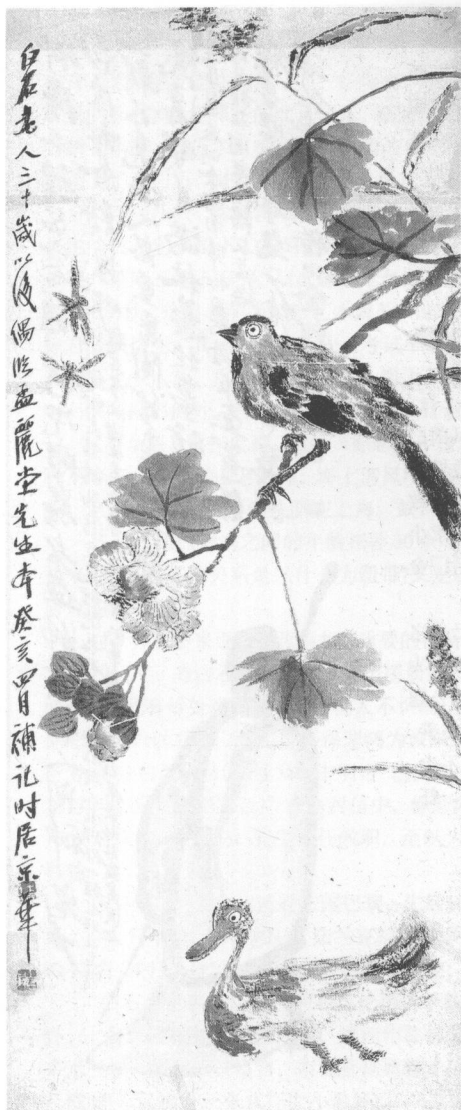 白石老人三十歲以後偶臨孟麗堂先生本癸亥四月補記时居京華